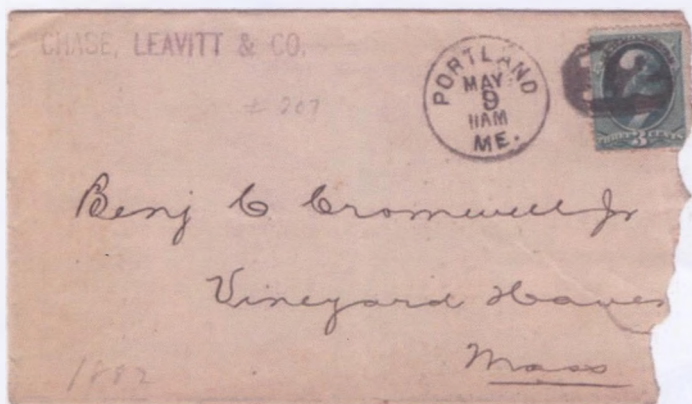 CHASE, LEAVITT & CO.
PORTLAND
MAY
9
11AM
ME.
THREE 3 CENTS
# 207
Benj C Cromwell Jr
Vineyard Haven
Mass
1882